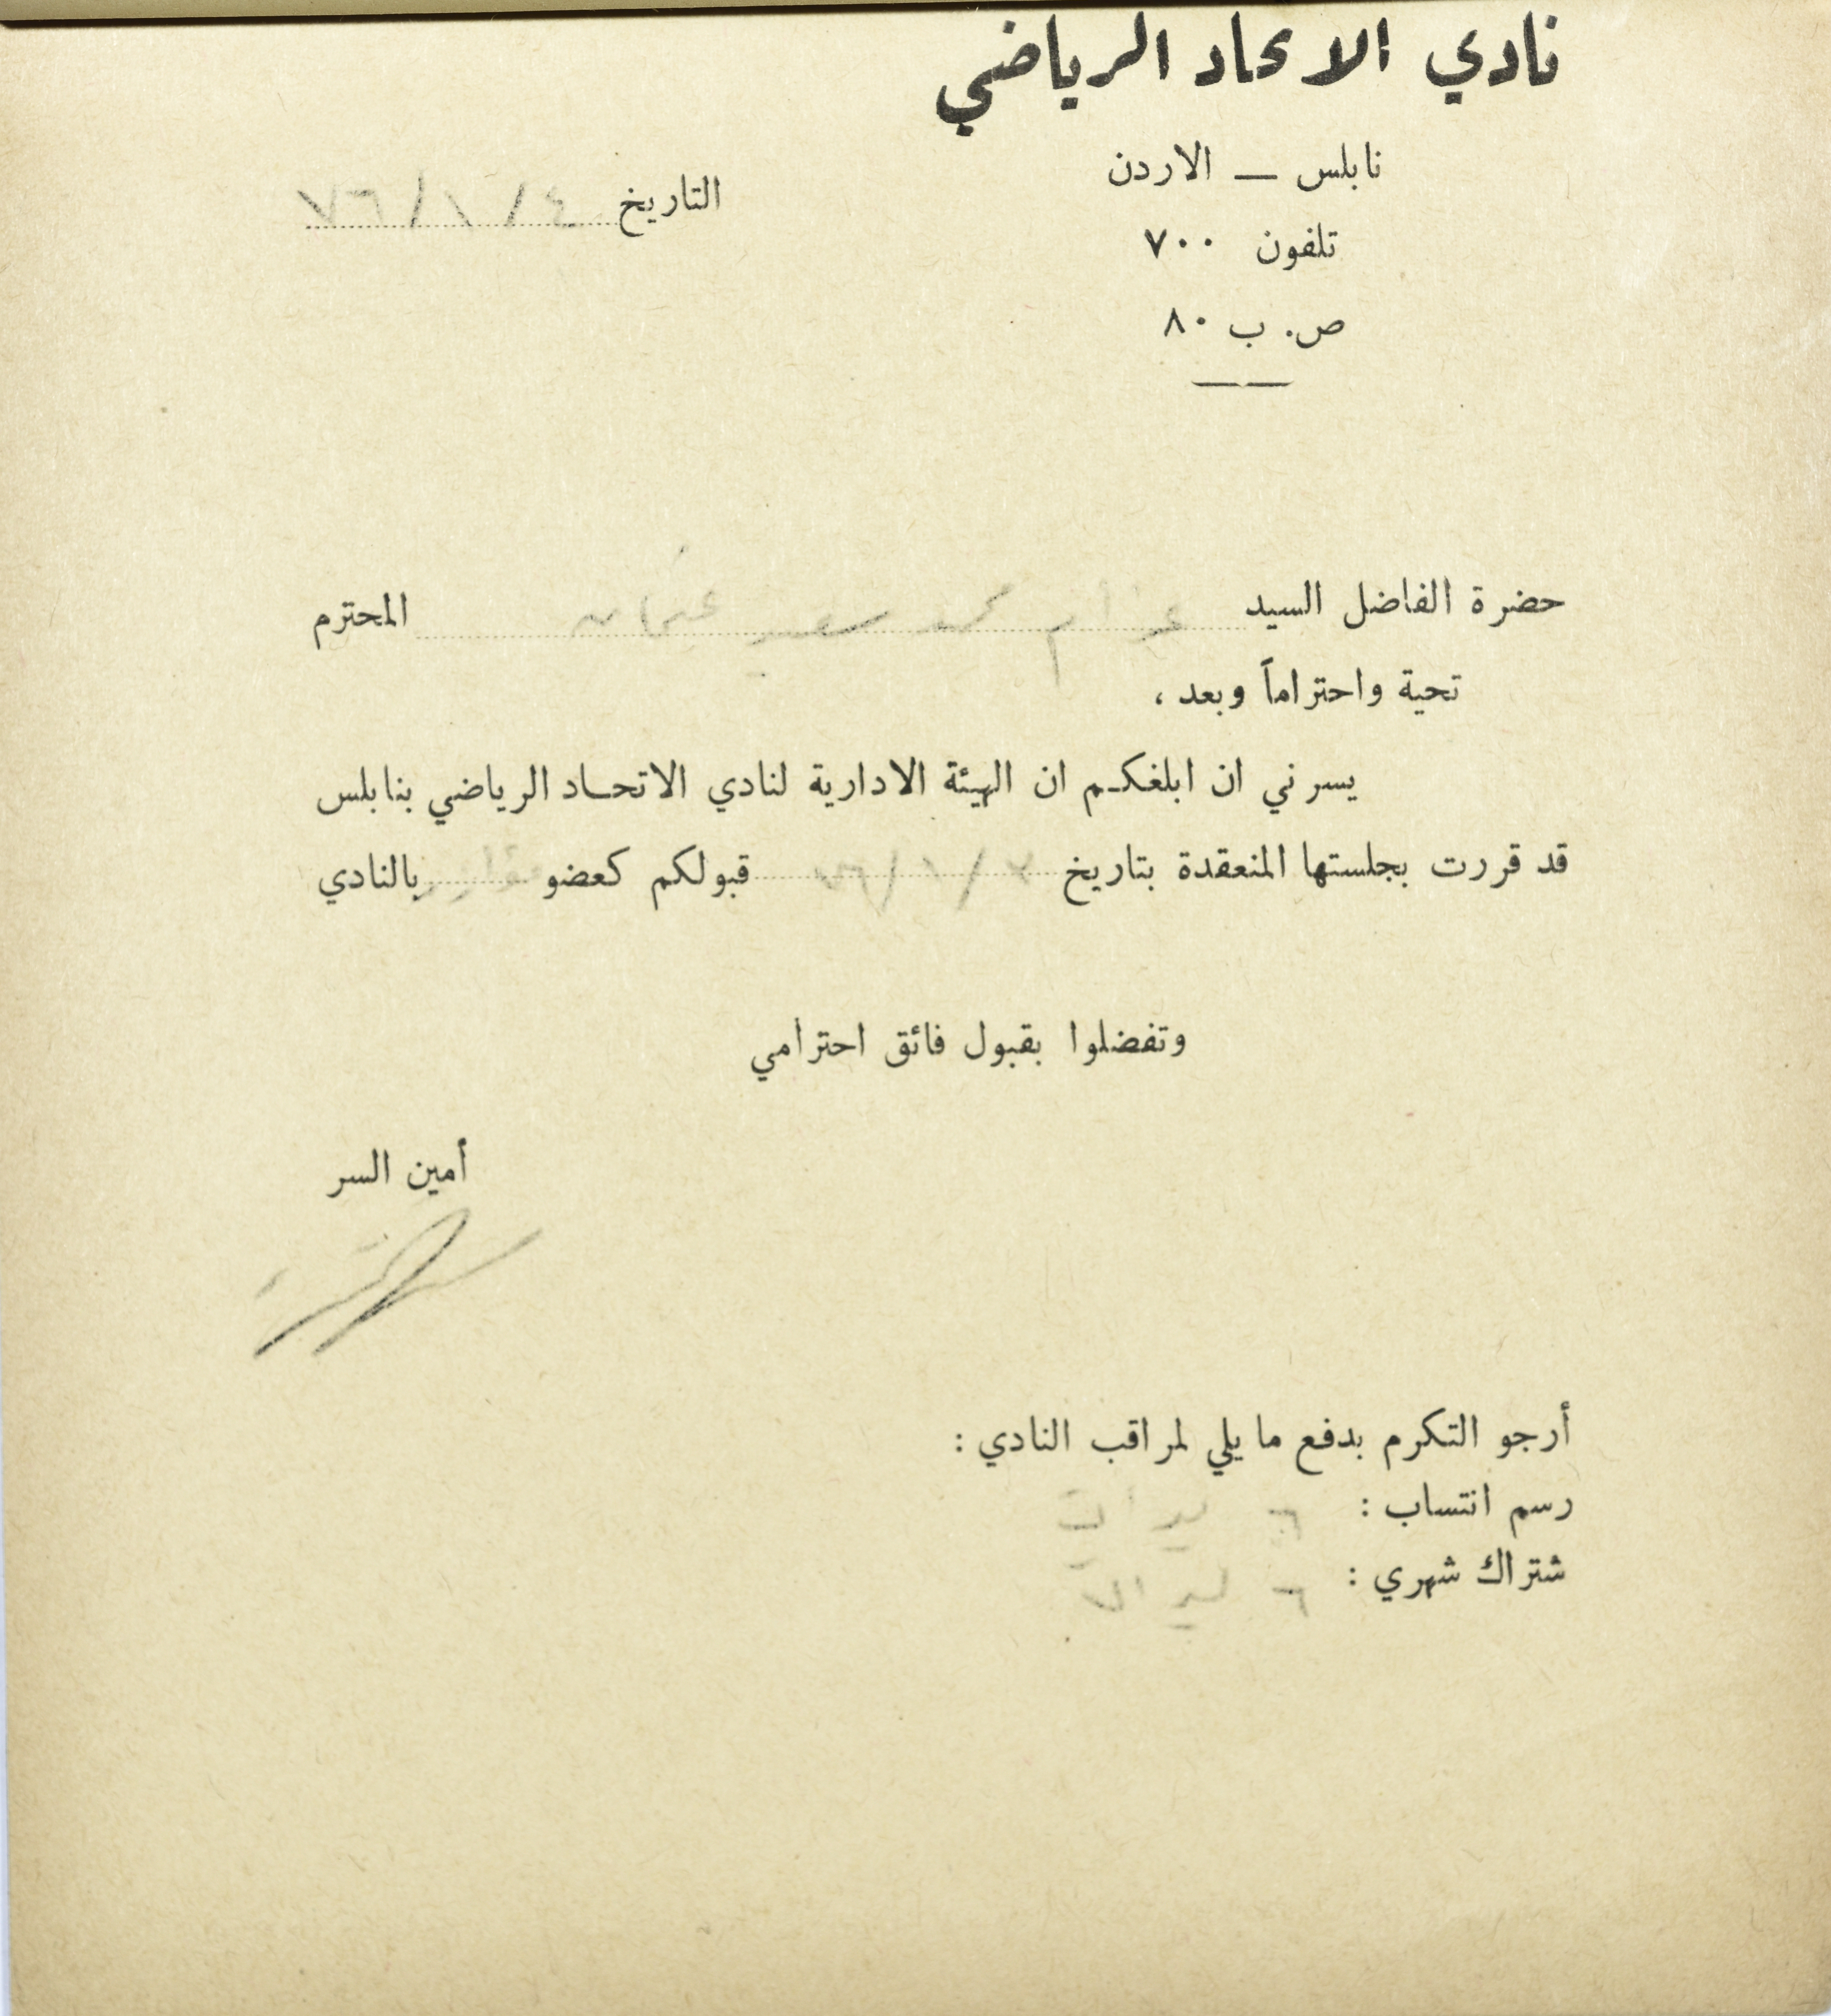 نادي الاتحاد الرياضي
نابلس — الاردن
تلفون ٧٠٠
ص. ب ٨٠
التاريخ ٤/١/٦٧
حضرة الفاضل السيد عزام محمد سعيد عثمان المحترم
تحية واحتراماً وبعد ،
يسرني ان ابلغكم ان الهيئة الادارية لنادي الاتحاد الرياضي بنابلس
قد قررت بجلستها المنعقدة بتاريخ قبولكم كعضو بالنادي
وتفضلوا بقبول فائق احترامي
أمين السر
أرجو التكرم بدفع ما يلي لمراقب النادي :
رسم انتساب :
شتراك شهري :